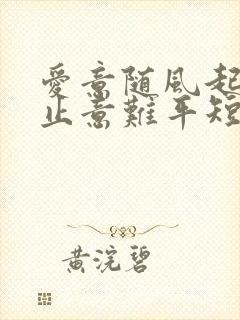 愛意随風起
止意難平短
黄浣碧